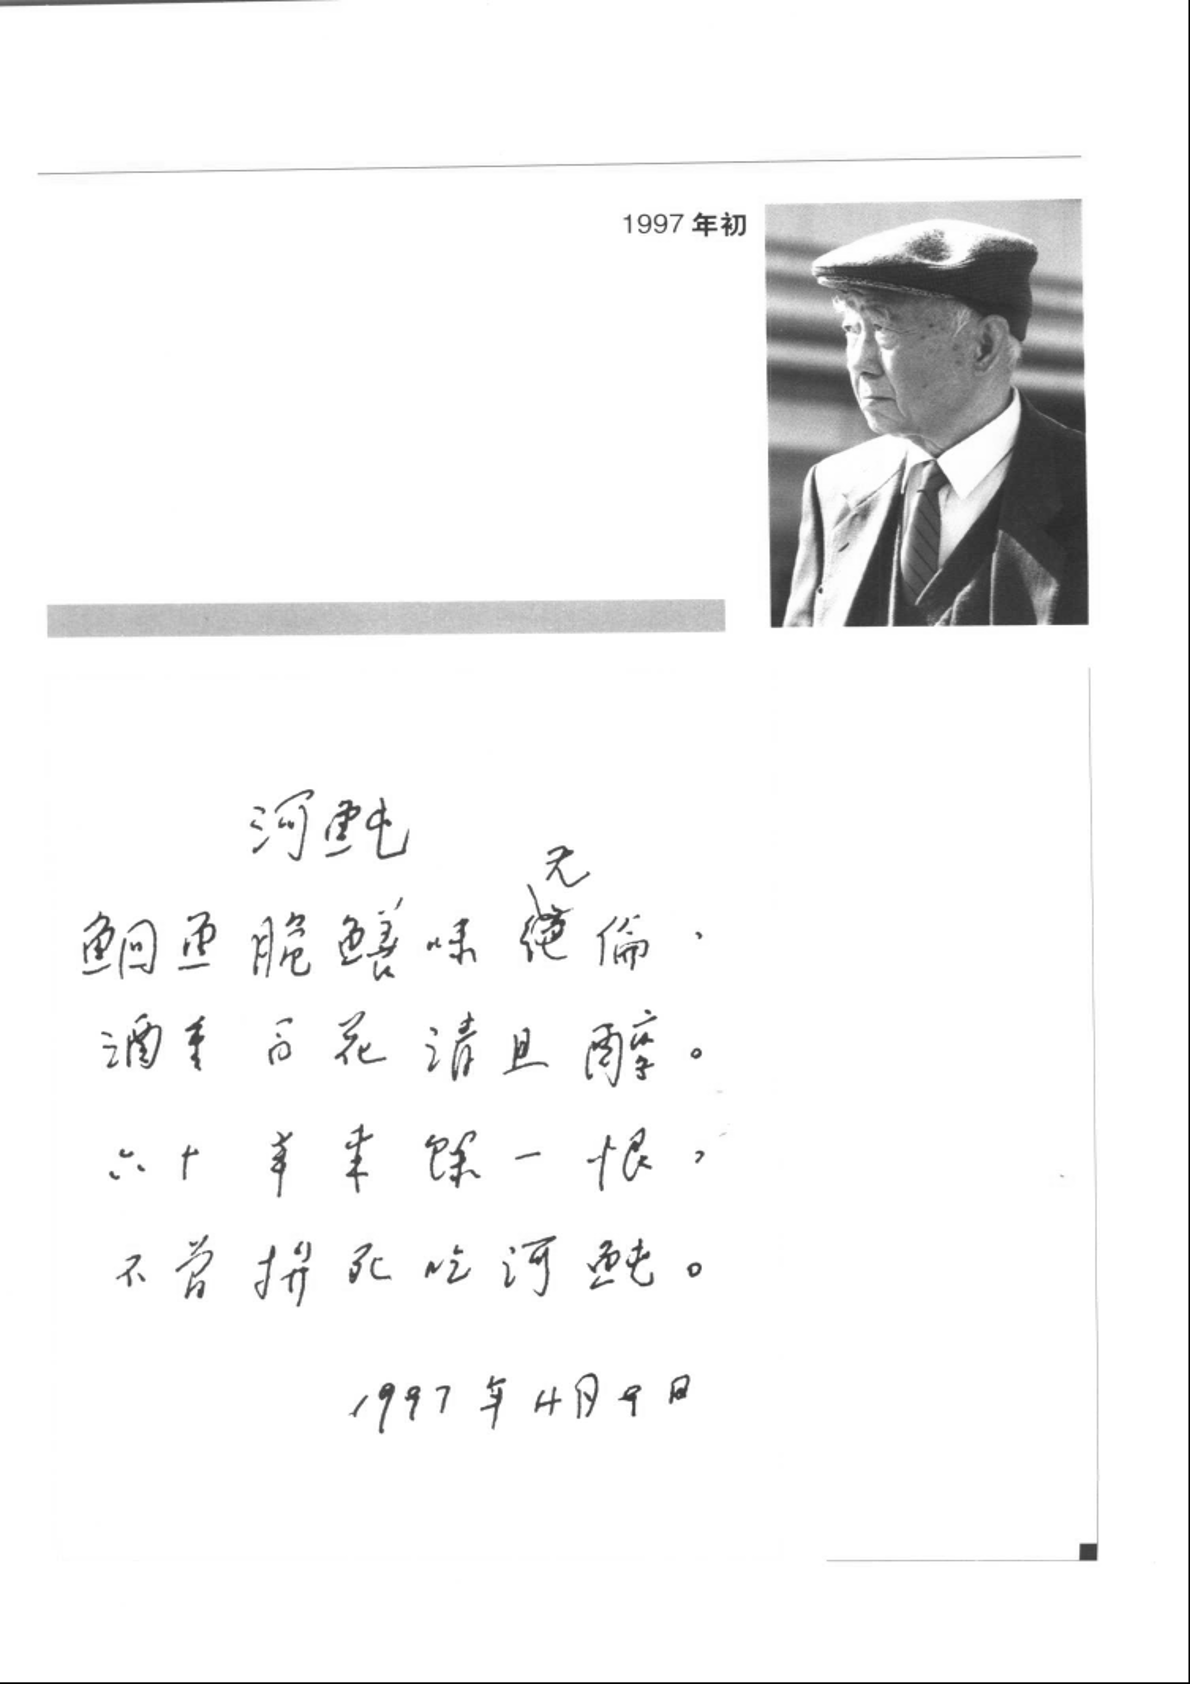 1997 年初
河魨
无
鮰鱼脆鳝味绝倫，
酒重百花清且醇。
六十年来餘一恨，
不曾拚死吃河魨。
1997年4月9日